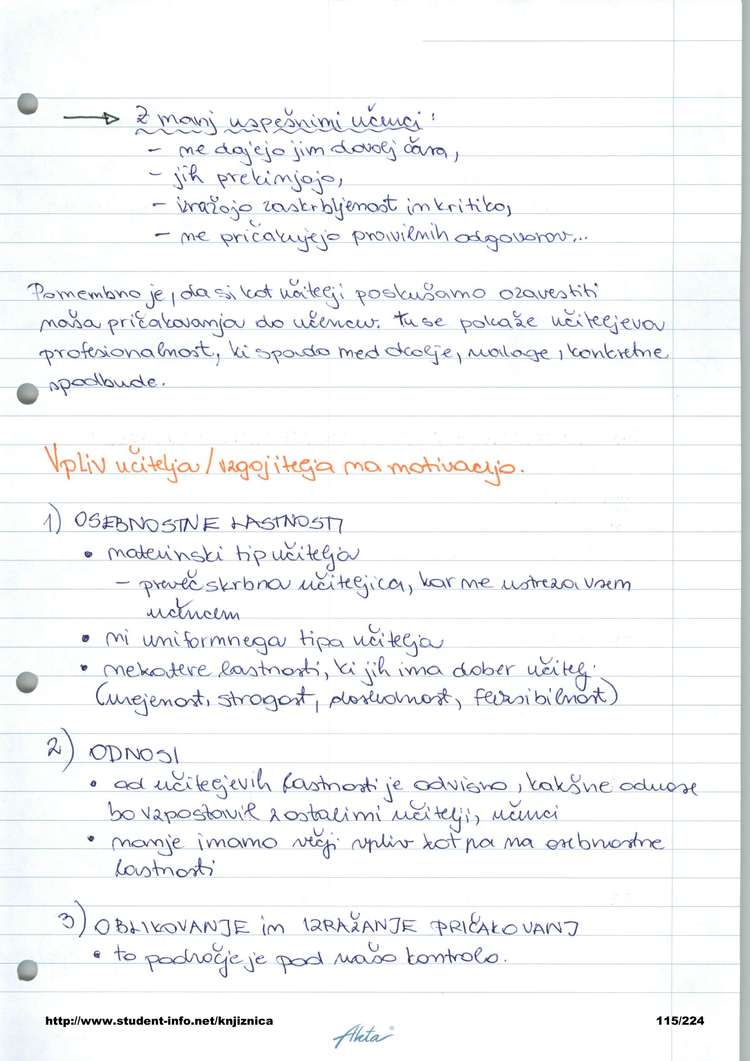 → Z manj uspešnimi učenci:
- ne dajejo jim dovolj časa,
- jih prekinjajo,
- izražajo zaskrbljenost in kritiko,
- ne pričakujejo pravilnih odgovorov...
Pomembno je, da si kot učitelji poskušamo ozavestiti
naša pričakovanja do učencev. Tu se pokaže učiteljeva
profesionalnost, ki spada med okolje, naloge, konkretne
spodbude.
Vpliv učitelja/vzgojitelja na motivacijo.
1) OSEBNOSTNE LASTNOSTI
• materinski tip učitelja
- preveč skrbna učiteljica, kar ne ustreza vsem
učencem
• ni uniformnega tipa učitelja
• nekatere lastnosti, ki jih ima dober učitelj.
(urejenost, strogost, doslednost, fleksibilnost)
2) ODNOSI
• od učiteljevih lastnosti je odvisno, kakšne odnose
bo vzpostavil z ostalimi učitelji, učenci
• nanje imamo večji vpliv kot pa na osebnostne
lastnosti
3) OBLIKOVANJE in IZRAŽANJE PRIČAKOVANJ
• to področje je pod našo kontrolo.
http://www.student-info.net/knjiznica
115/224
Akta